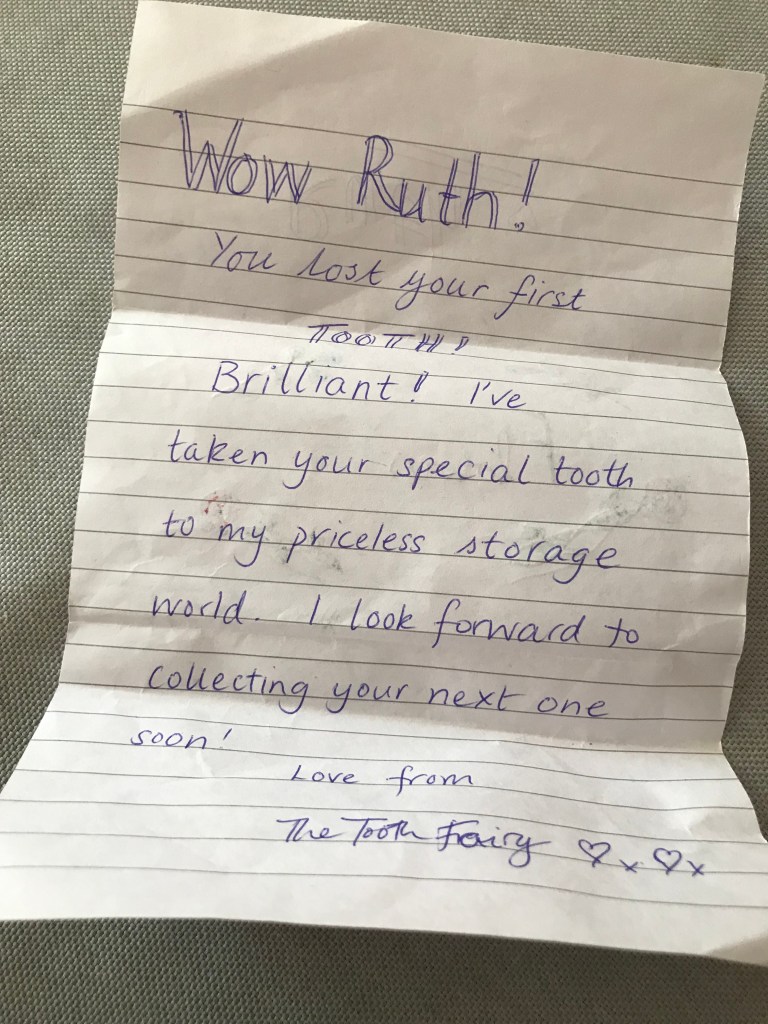 Wow Ruth!
You lost your first
TOOTH!
Brilliant! I've
taken your special tooth
to my priceless storage
world. I look forward to
collecting your next one
soon!
Love from
The Tooth Fairy ♡x♡x